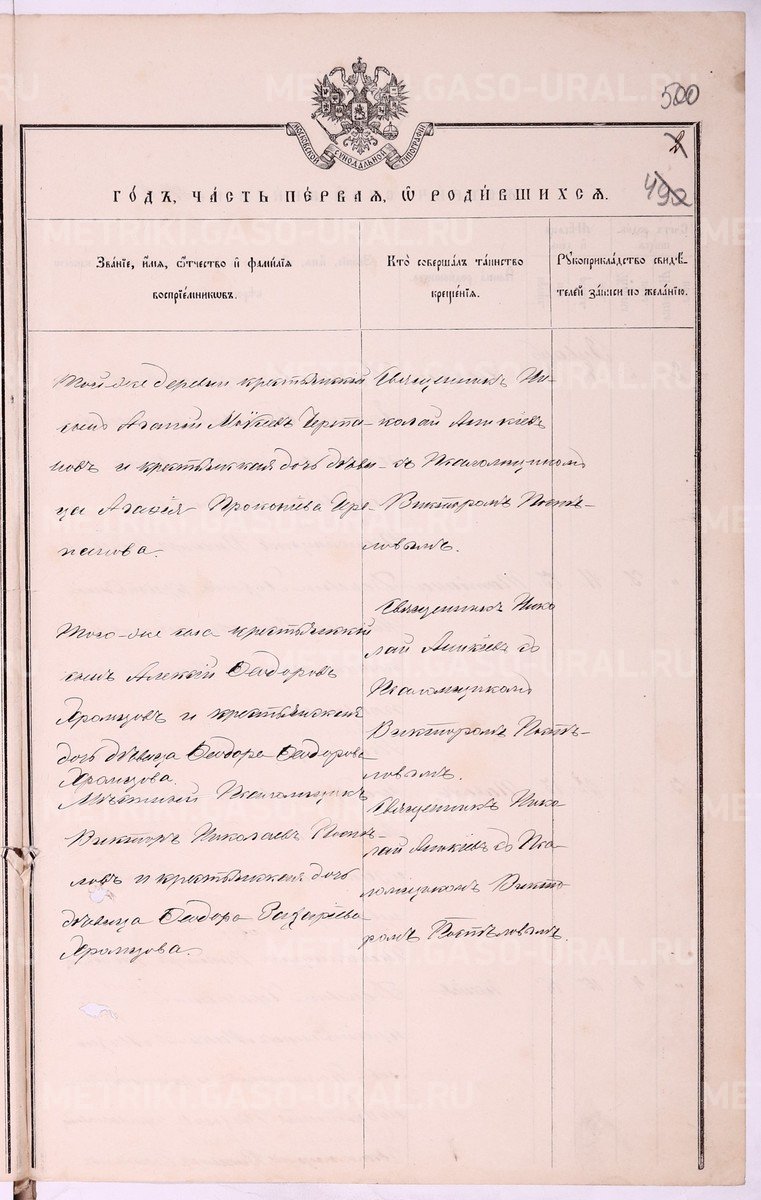 500
МОСКОВСКОЙ СѴНОДАЛЬНОЙ ТИПОГРАФІИ
492
ГО́ДЪ, ЧА́СТЬ ПЕ́РВАЯ, Ѡ҆ РОДИ́ВШИХСЯ.
Зва́нїе, и҆́мя, ѻ҆́тчество и҆ фами́лїя
воспрїе́мникѡвъ.
Кто̀ соверша́лъ та́инство
креще́нїя.
Рꙋкоприкла́дство свидѣ́-
телей за́писи по жела́нїю.
Той-же деревни крестьянскій
сынъ Агапій Мокіевъ Черепа-
новъ и крестьянская дочь дѣви-
ца Агафія Прокопіева Чере-
панова.
Священникъ Ни-
колай Аникіевъ
съ Псаломщикомъ
Викторомъ Поспѣ-
ловымъ.
Того-же села крестьянскій
сынъ Алексій Ѳеодоровъ
Хромцовъ и крестьянская
дочь дѣвица Ѳеодора Ѳеодорова
Хромцова.
Священникъ Нико
лай Аникіевъ съ
Псаломщикомъ
Викторомъ Поспѣ-
ловымъ.
Мѣстный Псаломщикъ
Викторъ Николаевъ Поспѣ-
ловъ и крестьянская дочь
дѣвица Ѳеодора Хромцова.
Священникъ Нико
лай Аникіевъ съ Пса
ломщикомъ Викто
ромъ Поспѣловымъ.
METRIKI.GASO-URAL.RU